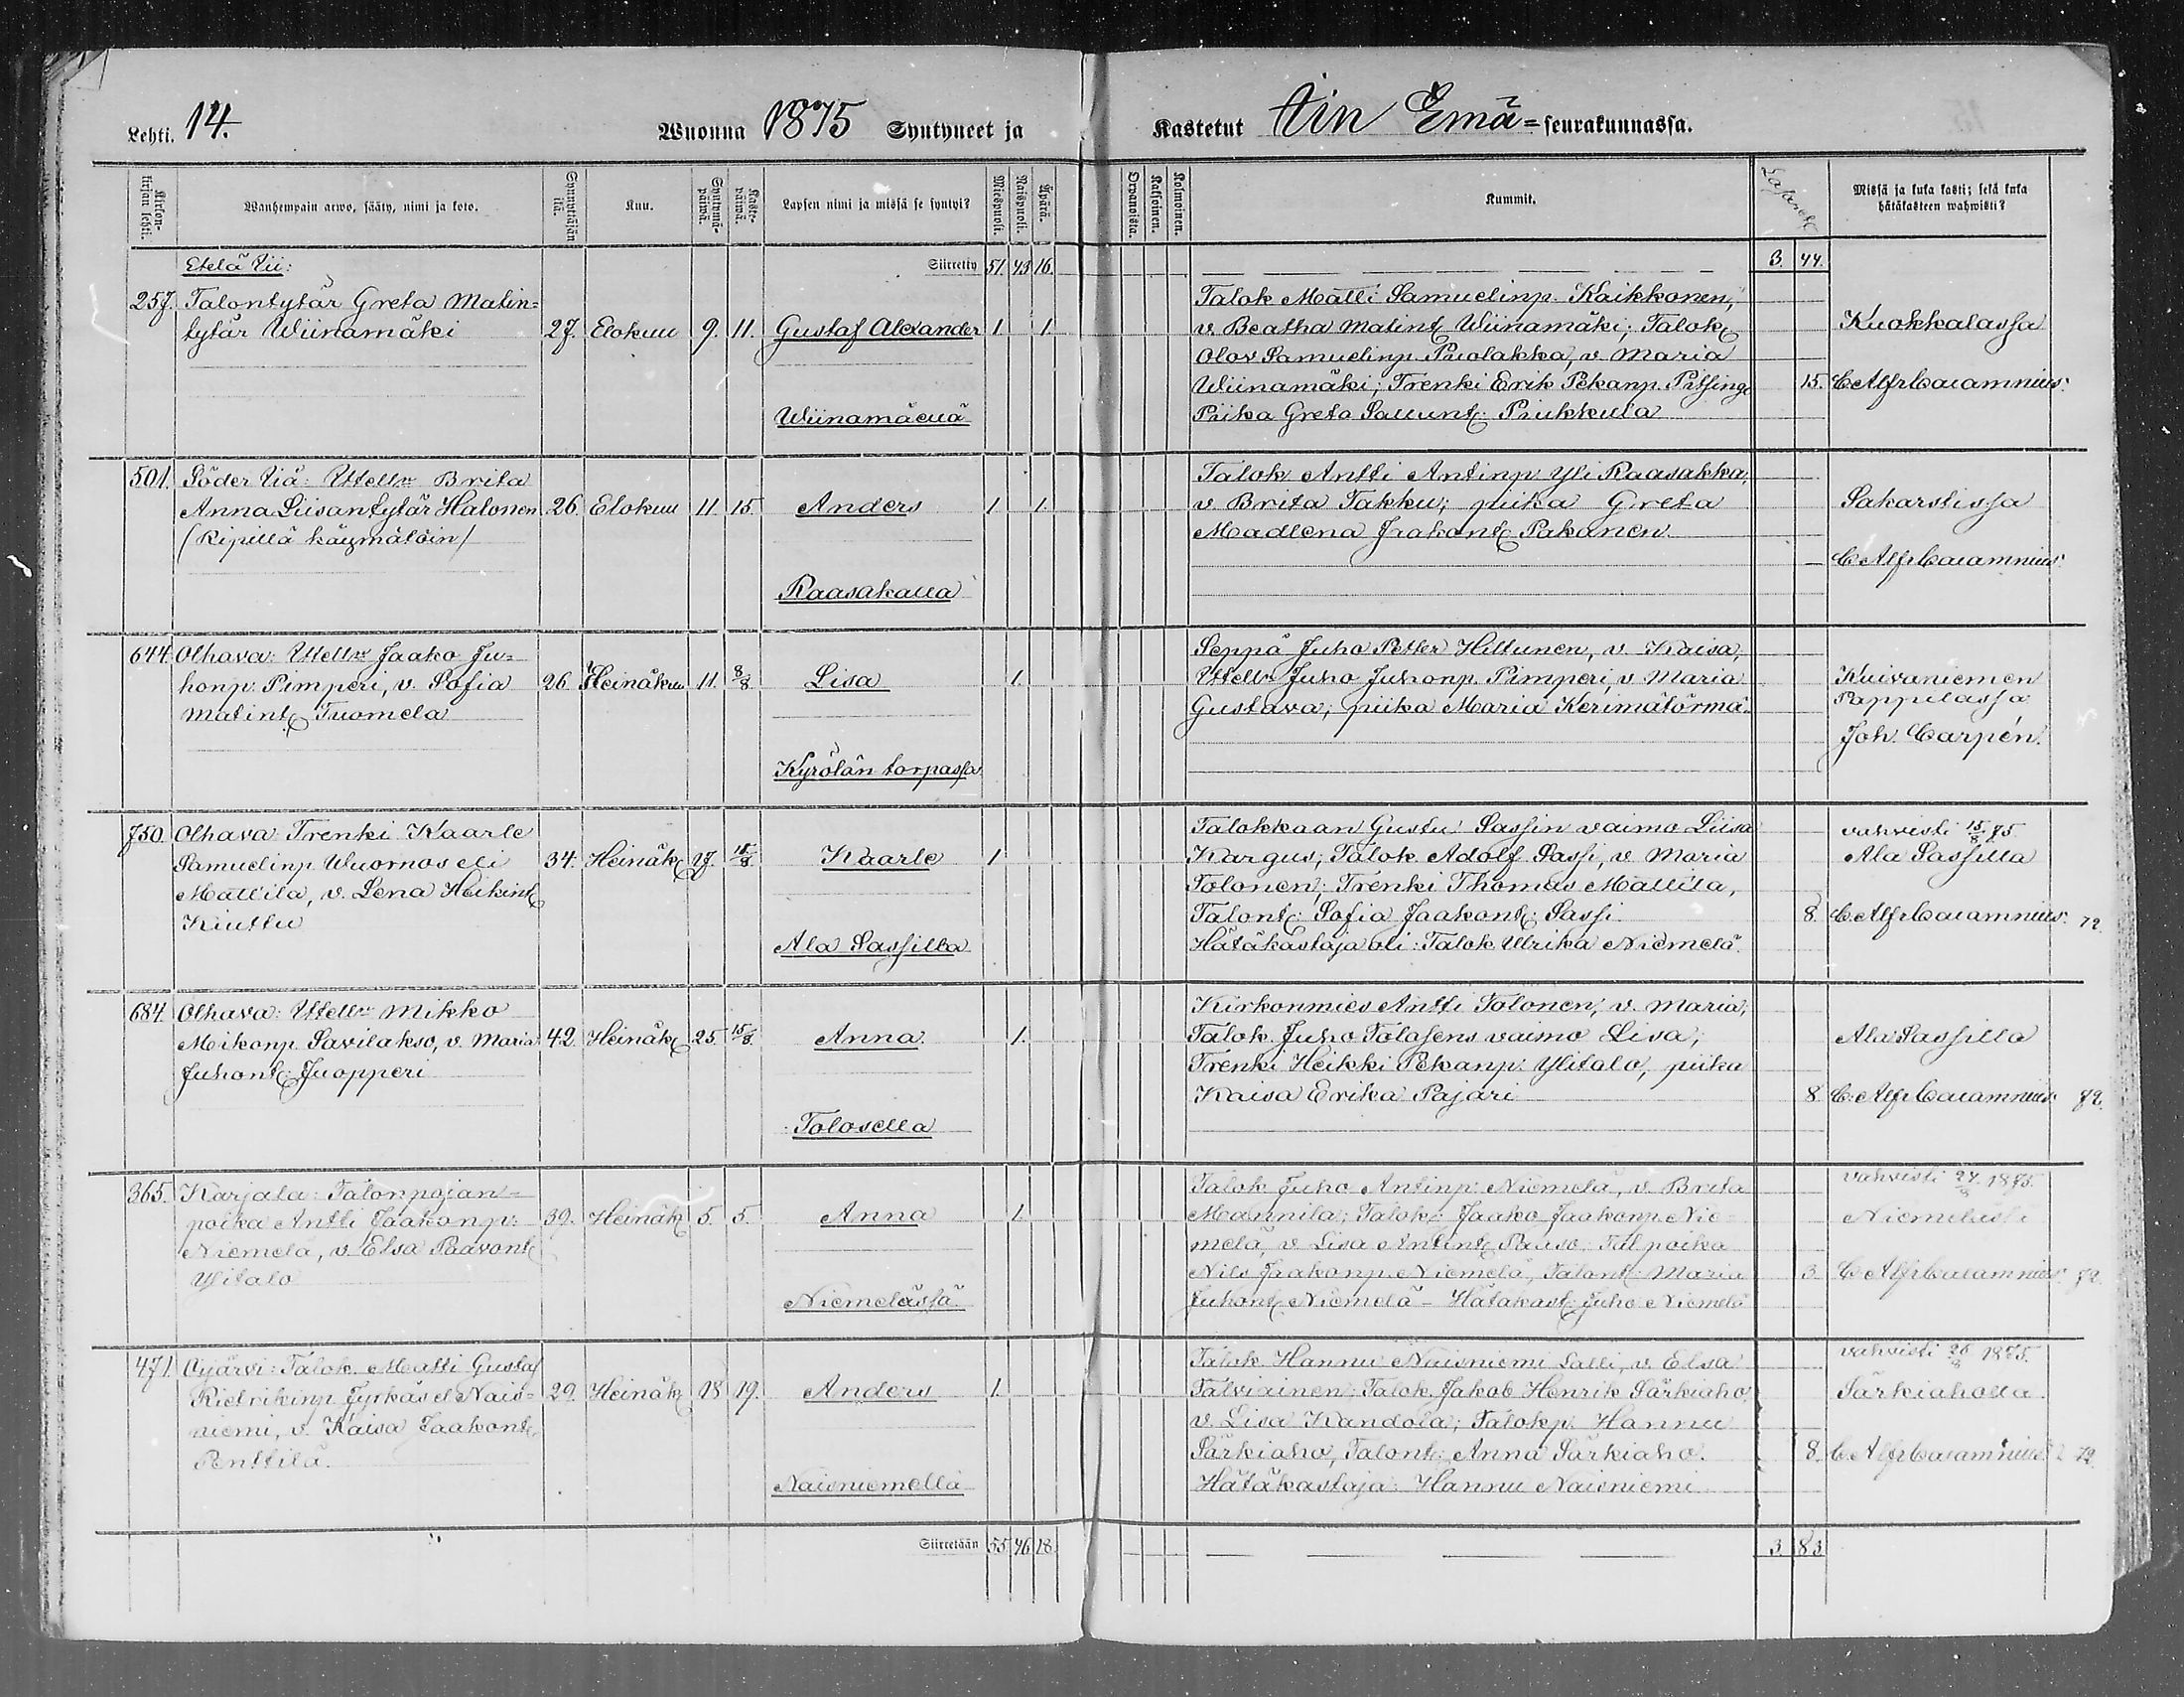 Lehti. 14. Wuonna 1875 Syntyneet ja Kastetut Iin Emä=seurakunnassa.
Kirkon-kirjan lehti.
Wanhempain arwo, sääty, nimi ja koto.
Synnyttäjän ikä.
Kuu.
Syntymä-päiwä.
Kaste-päiwä.
Lapsen nimi ja missä se syntyi?
Miespuoli.
Waispuoli.
Äpärä.
Orpanoista.
Kaksoinen.
Kolmoinen.
Kummit.
Missä ja kuka kasti; sekä kuka
hätäkasteen wahwisti?
Etelä Ii: Siirretty 51. 45 16. 3. 44.
257. Talontytär Greta Matin=
tytär Wiinamäki 27. Elokuu 9. 11. Gustaf Alexander 1. 1.
Wiinamäellä
Talok Matti Samuelinp. Kaikkonen,
v. Beatha Matint. Wiinamäki; Talok.
Olov Samuelinp. Puolakka, v. Maria
Wiinamäki; Trenki Erik Pekanp.
Piika Greta Paulint. Piukkula
Kuokkalassa
15. C Alfr Calamnius.
501. Söder Iiå: Itsellr Brita
Anna Liisantytär Halonen 26. Elokuu 11. 15. Anders 1. 1.
/Ripillä käymätöin/
Raasakalla
Talok Antti Antinp. Yli Raasakka,
v Brita Takku; piika Greta
Madlena Jaakont. Pakanen.
Sakarstissa
C Alfr Calamnius.
644. Olhava: Itsellr Jaako Ju=
honp. Pimperi, v. Sofia 26. Heinäkuu 11. 8/8 Lisa 1.
Matint. Tuomela
Kyrölän torpassa
Seppä Juho Petter Hiltunen, v. Kaisa,
Itsellr Juho Juhonp. Pimperi, v Maria
Gustava; piika Maria Kerimätörmä.
Kuivaniemen
Pappilassa
Joh. Carpén.
750. Olhava: Trenki Kaarle
Samuelinp. Wuornos eli 34. Heinäk. 27. 15/8. Kaarle 1
Mattila, v. Lena Heikint.
Kinttu
Ala Sassilla
Talokkaan Gustu Sassin vaimo Liisa
Kargus; Talok. Adolf Sassi, v. Maria
Tolonen; Trenki Thomas Mattila,
Talont. Sofia Jaakont. Sassi.
Hätäkastaja oli: Talok. Ulrika Niemelä.
vahvisti 15/8 75.
Ala Sassilla
8. C Alfr Calamnius. 72.
684. Olhava: Itsellr Mikko
Mikonp. Savilakso, v. Maria 42. Heinäk. 25. 15/8. Anna 1.
Juhont. Juopperi
Tolosella
Kirkonmies Antti Tolonen, v. Maria;
Talok. Juho Tolasens vaimo Lisa;
Trenki Heikki Pekanp. Ylitalo, piika
Kaisa Erika Pajari
Ala Sassilla
8. C. Alfr Calamnius. 72.
365. Karjala: Talonpojan=
poika Antti Jaakonp. 39. Heinäk. 5. 5. Anna 1.
Niemelä, v. Elsa Paavont.
Ylitalo
Niemelässä.
Talok Juho Antinp. Niemelä, v. Brita
Mannila; Talok. Jaako Jaakonp. Nie=
melä, v Lisa Antint. Paaso; Tal poika
Nils Jaakonp. Niemelä, Talont. Maria
Juhont. Niemelä - Hätäkast. Juho Niemelä
vahvisti 24/8 1875.
3. C Alfr Calamnius. 72.
471. Oijärvi: Talok. Matti Gustaf
Rietrikinp. Jyrkäs el Nais= 29. Heinäk. 18 19. Anders 1.
niemi, v. Kaisa Jaakont.
Penttilä.
Naisniemellä
Talok. Hannu Naisniemi Salli, v. Elsa
Talviainen; Talok. Jakob Henrik Särkiaho
v. Lisa Kandola; Talokp. Hannu
Särkiaho, Talont. Anna Särkiaho.
Hätäkastaja: Hannu Naisniemi
vahvisti 26/8 1875.
Särkiaholla.
8. C. Alfr Calamnius. 72.
Siirretään 55 46 18. 3. 83.